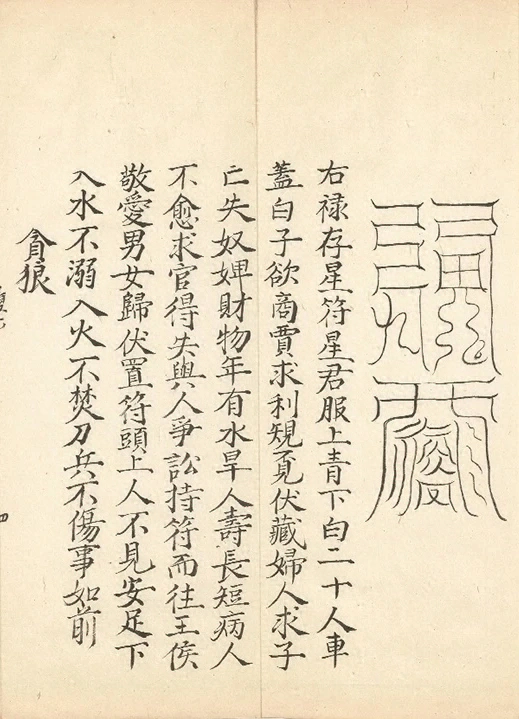 右禄存星符星君服上青下白二十人車
蓋白子欲商賈求利規覔伏藏婦人求子
亡失奴婢財物年有水旱人壽長短病人
不愈求官得失與人爭訟持符而往王侯
敬愛男女歸伏置符頭上人不見安足下
入水不溺入火不焚刀兵不傷事如前
貪狼
四